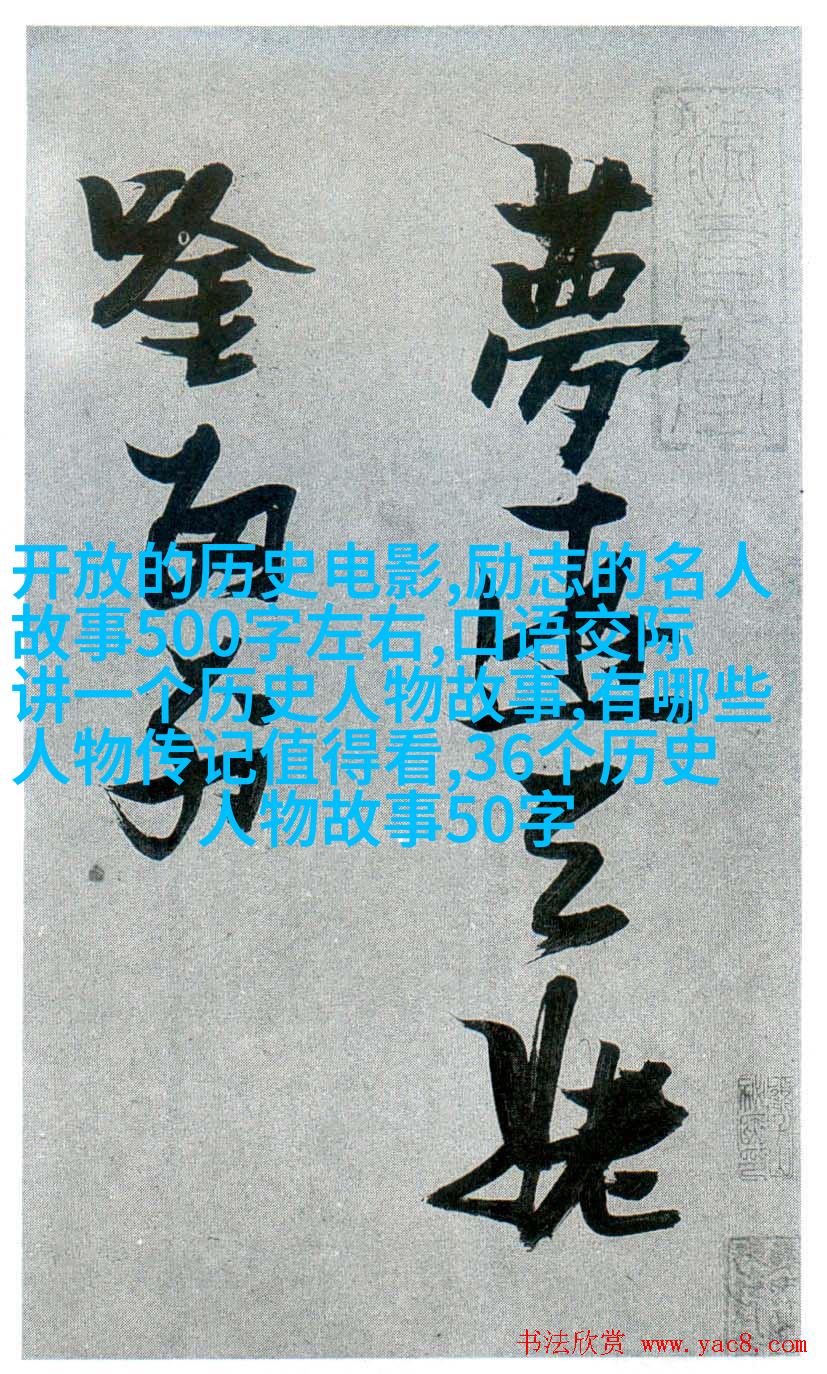 夢遊天姥
唫留别
开放的历史电影,励志的名人
故事500字左右,口语交际
讲一个历史人物故事,有哪些
人物传记值得看,36个历史
人物故事50字
书法欣赏 www.yac8.com